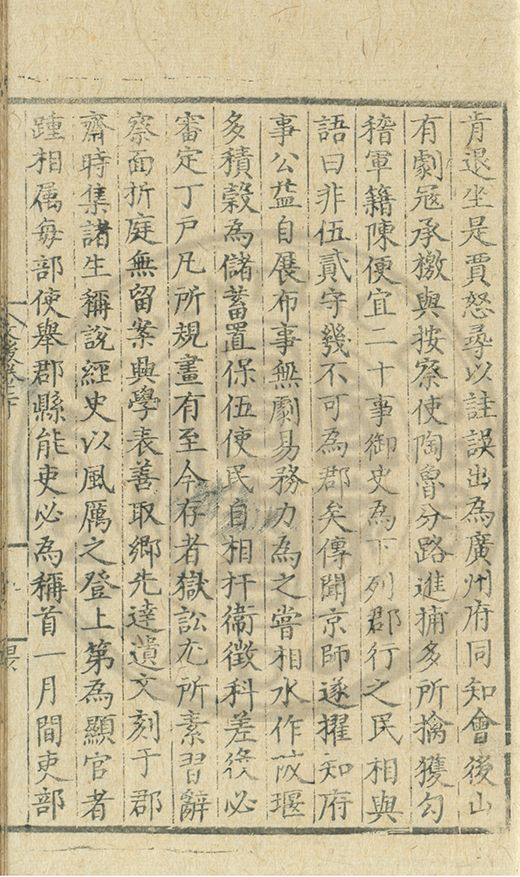 肯退坐是賈怒尋以詿誤出為廣州府同知會後山
有劇冦承檄與按察使陶魯分路進捕多所擒獲勾
稽軍籍陳便宜二十事御史為下列郡行之民相與
語曰非伍貳守幾不可為郡矣傳聞京師遂擢知府
事公益自展布事無劇易務力為之嘗相水作陂堰
多積榖為儲蓄置保伍使民自相扞衛徵科差役必
審定丁戶凡所規畫有至今存者獄訟尤所素習辭
察面折庭無留案興學表善取鄉先達遺文刻于郡
齋時集諸生稱說經史以風厲之登上第為顯官者
踵相属每部使舉郡縣能吏必為稱首一月間吏部